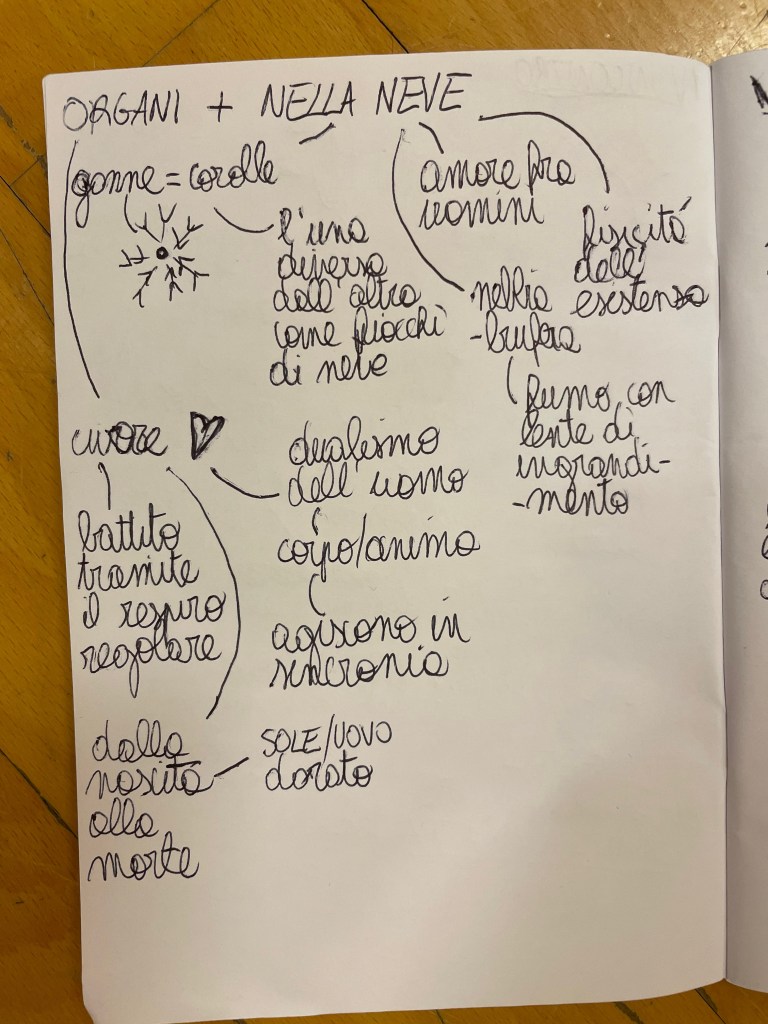 ORGANI + NELLA NEVE
gonne = corolle
l'una
diversa
dall'altra
come fiocchi
di neve
amore fra
uomini
fisicità
dell'
esistenza
nebbia
-bufera
fumo con
lente di
ingrandi-
-mento
cuore
battito
tramite
il respiro
regolare
dualismo
dell'uomo
corpo/anima
agiscono in
sincronia
dalla
nascita
alla
morte
SOLE/UOVO
dorato